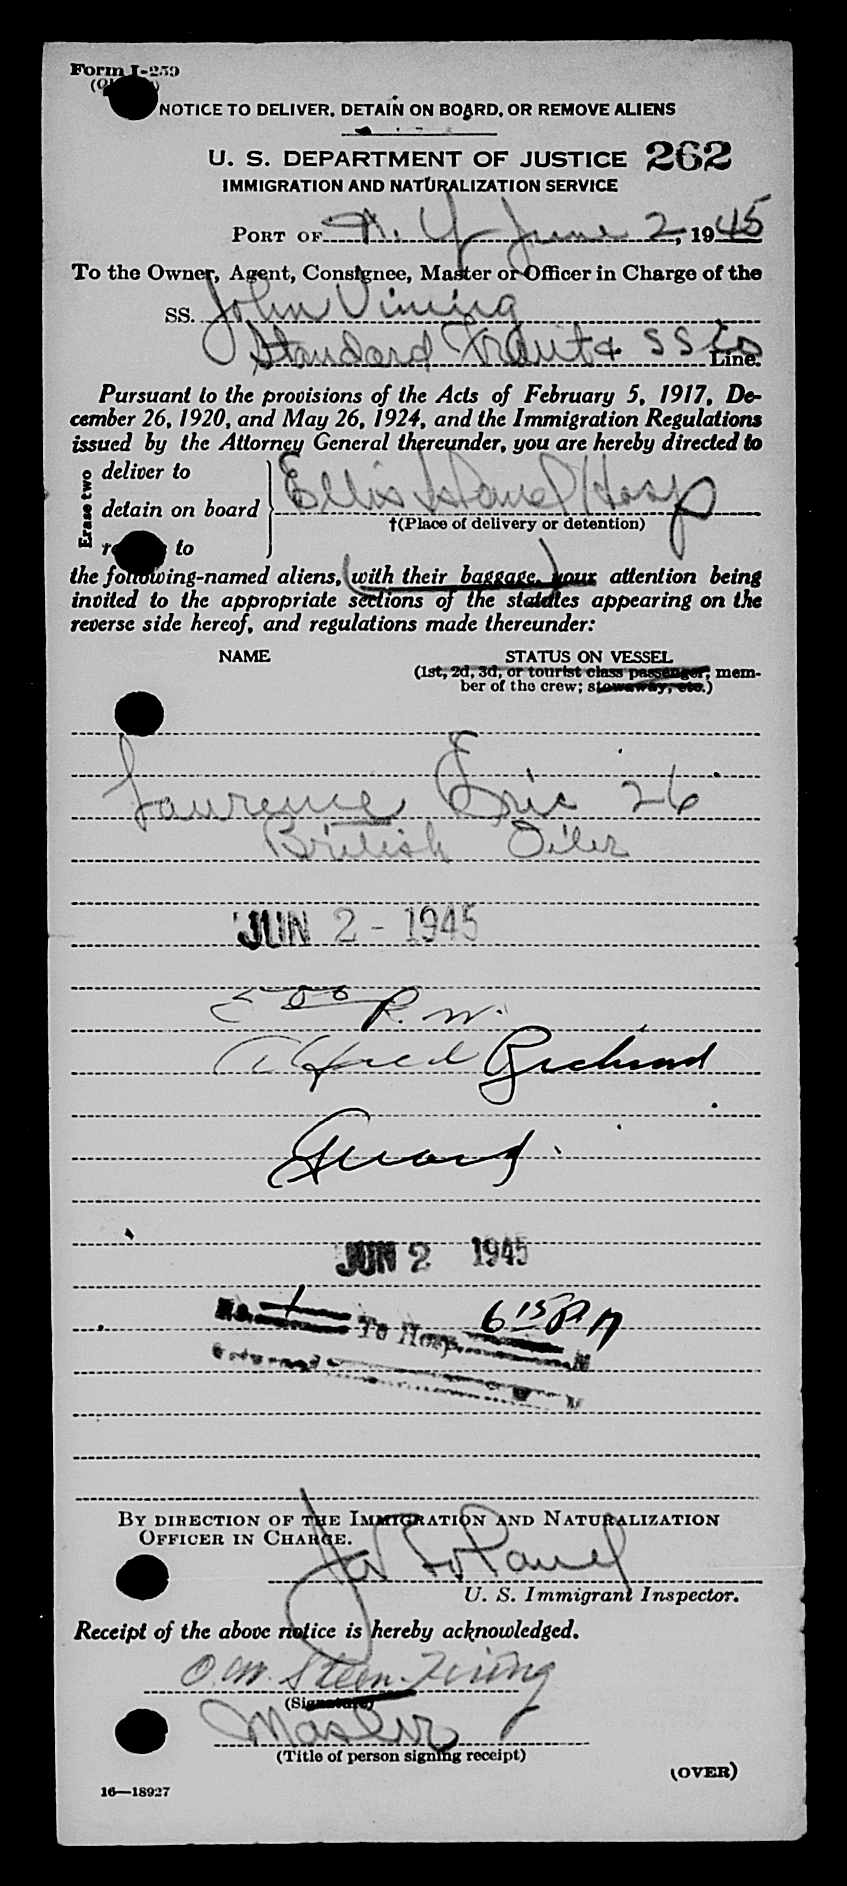 Form I-259
NOTICE TO DELIVER, DETAIN ON BOARD, OR REMOVE ALIENS
U. S. DEPARTMENT OF JUSTICE 262
IMMIGRATION AND NATURALIZATION SERVICE
PORT OF N. Y June 2, 1945
To the Owner, Agent, Consignee, Master or Officer in Charge of the
SS. John Vining
Standard Fruit & SS Co Line.
Pursuant to the provisions of the Acts of February 5, 1917, De-
cember 26, 1920, and May 26, 1924, and the Immigration Regulations
issued by the Attorney General thereunder, you are hereby directed to
Erase two
deliver to
detain on board Ellis Island Hosp
†(Place of delivery or detention)
to
the following-named aliens, (with their baggage,) your attention being
invited to the appropriate sections of the statutes appearing on the
reverse side hereof, and regulations made thereunder:
NAME STATUS ON VESSEL
(1st, 2d, 3d, or tourist class passenger; mem-
ber of the crew; stowaway, etc.)
Laurence Eric 26
British Oiler
JUN 2 - 1945
500 P. M.
Alfred
Guard.
JUN 2 1945
No. 1 To Hosp. 6 15 P M
Returned
BY DIRECTION OF THE IMMIGRATION AND NATURALIZATION
OFFICER IN CHARGE.
U. S. Immigrant Inspector.
Receipt of the above notice is hereby acknowledged.
O. M. Steen-
(Signature)
Master
(Title of person signing receipt)
(OVER)
16—18927